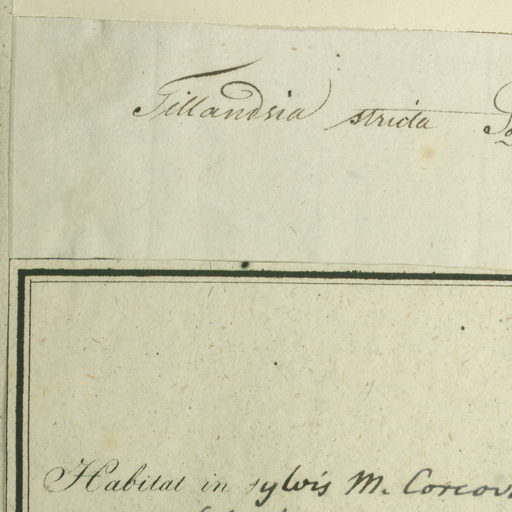 Tillandsia stricta
Habitat in sylvis M. Corcov